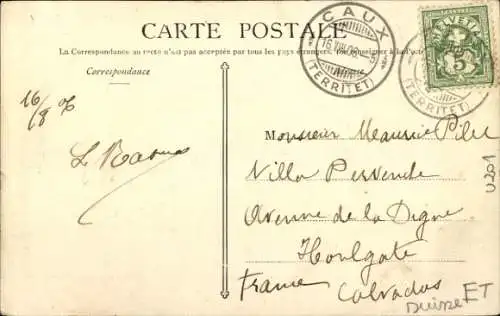 CARTE POSTALE
La Correspondance au recto n'est pas acceptée par tous les pays étrangers.
Correspondance
CAUX
16.VIII.06
(TERRITET)
HELVETIA
5
(TERRITET)
16/8 06
Monsieur Maurice
Villa
Avenue de la Digue
Houlgate
France
Calvados
Suisse
ET
U201